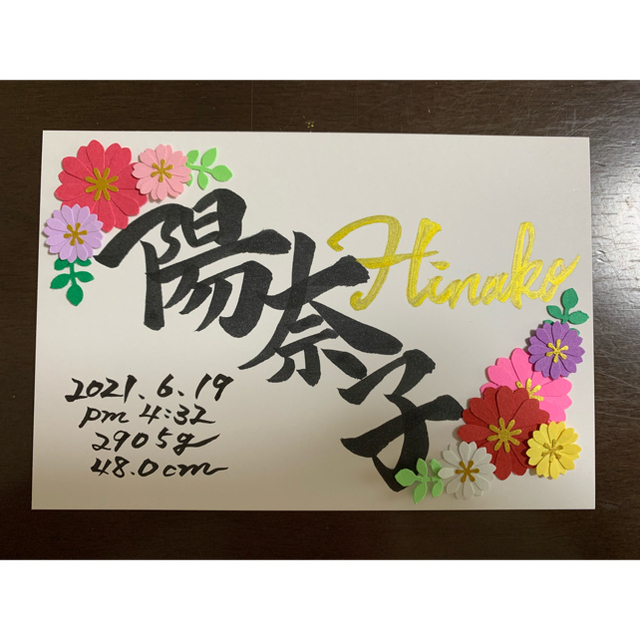 陽奈子
Hinako
2021.6.19
pm 4:32
2905g
48.0cm